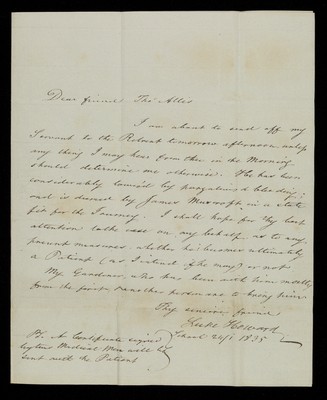 Dear friend Thos Allis
I am about to send off my
Servant to the Retreat tomorrow afternoon, unless
any thing I may hear from thee in the Morning
should determine me otherwise. He has been
considerably lowered by purgatives & bleeding;
and is deemed by James in a state
fit for the Journey. I shall hope for thy best
attention to the case on my behalf, as to any
present measures, whether he becomes ultimately
a Patient (as I intend if he may) or not
My Gardener, who has been with him mostly
from the first, & another propose to bring him
Thy sincere friend
Luke Howard
24/1 1835
PS. A Certificate signed
by two Medical Men will be
sent with the Patient